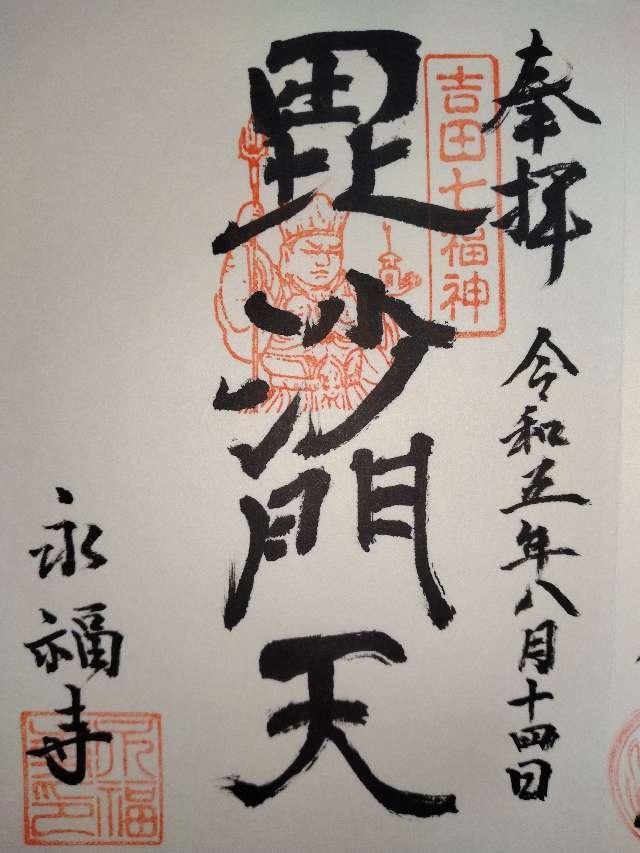 奉拝
令和五年八月十四日
吉田七福神
毘沙門天
永福寺